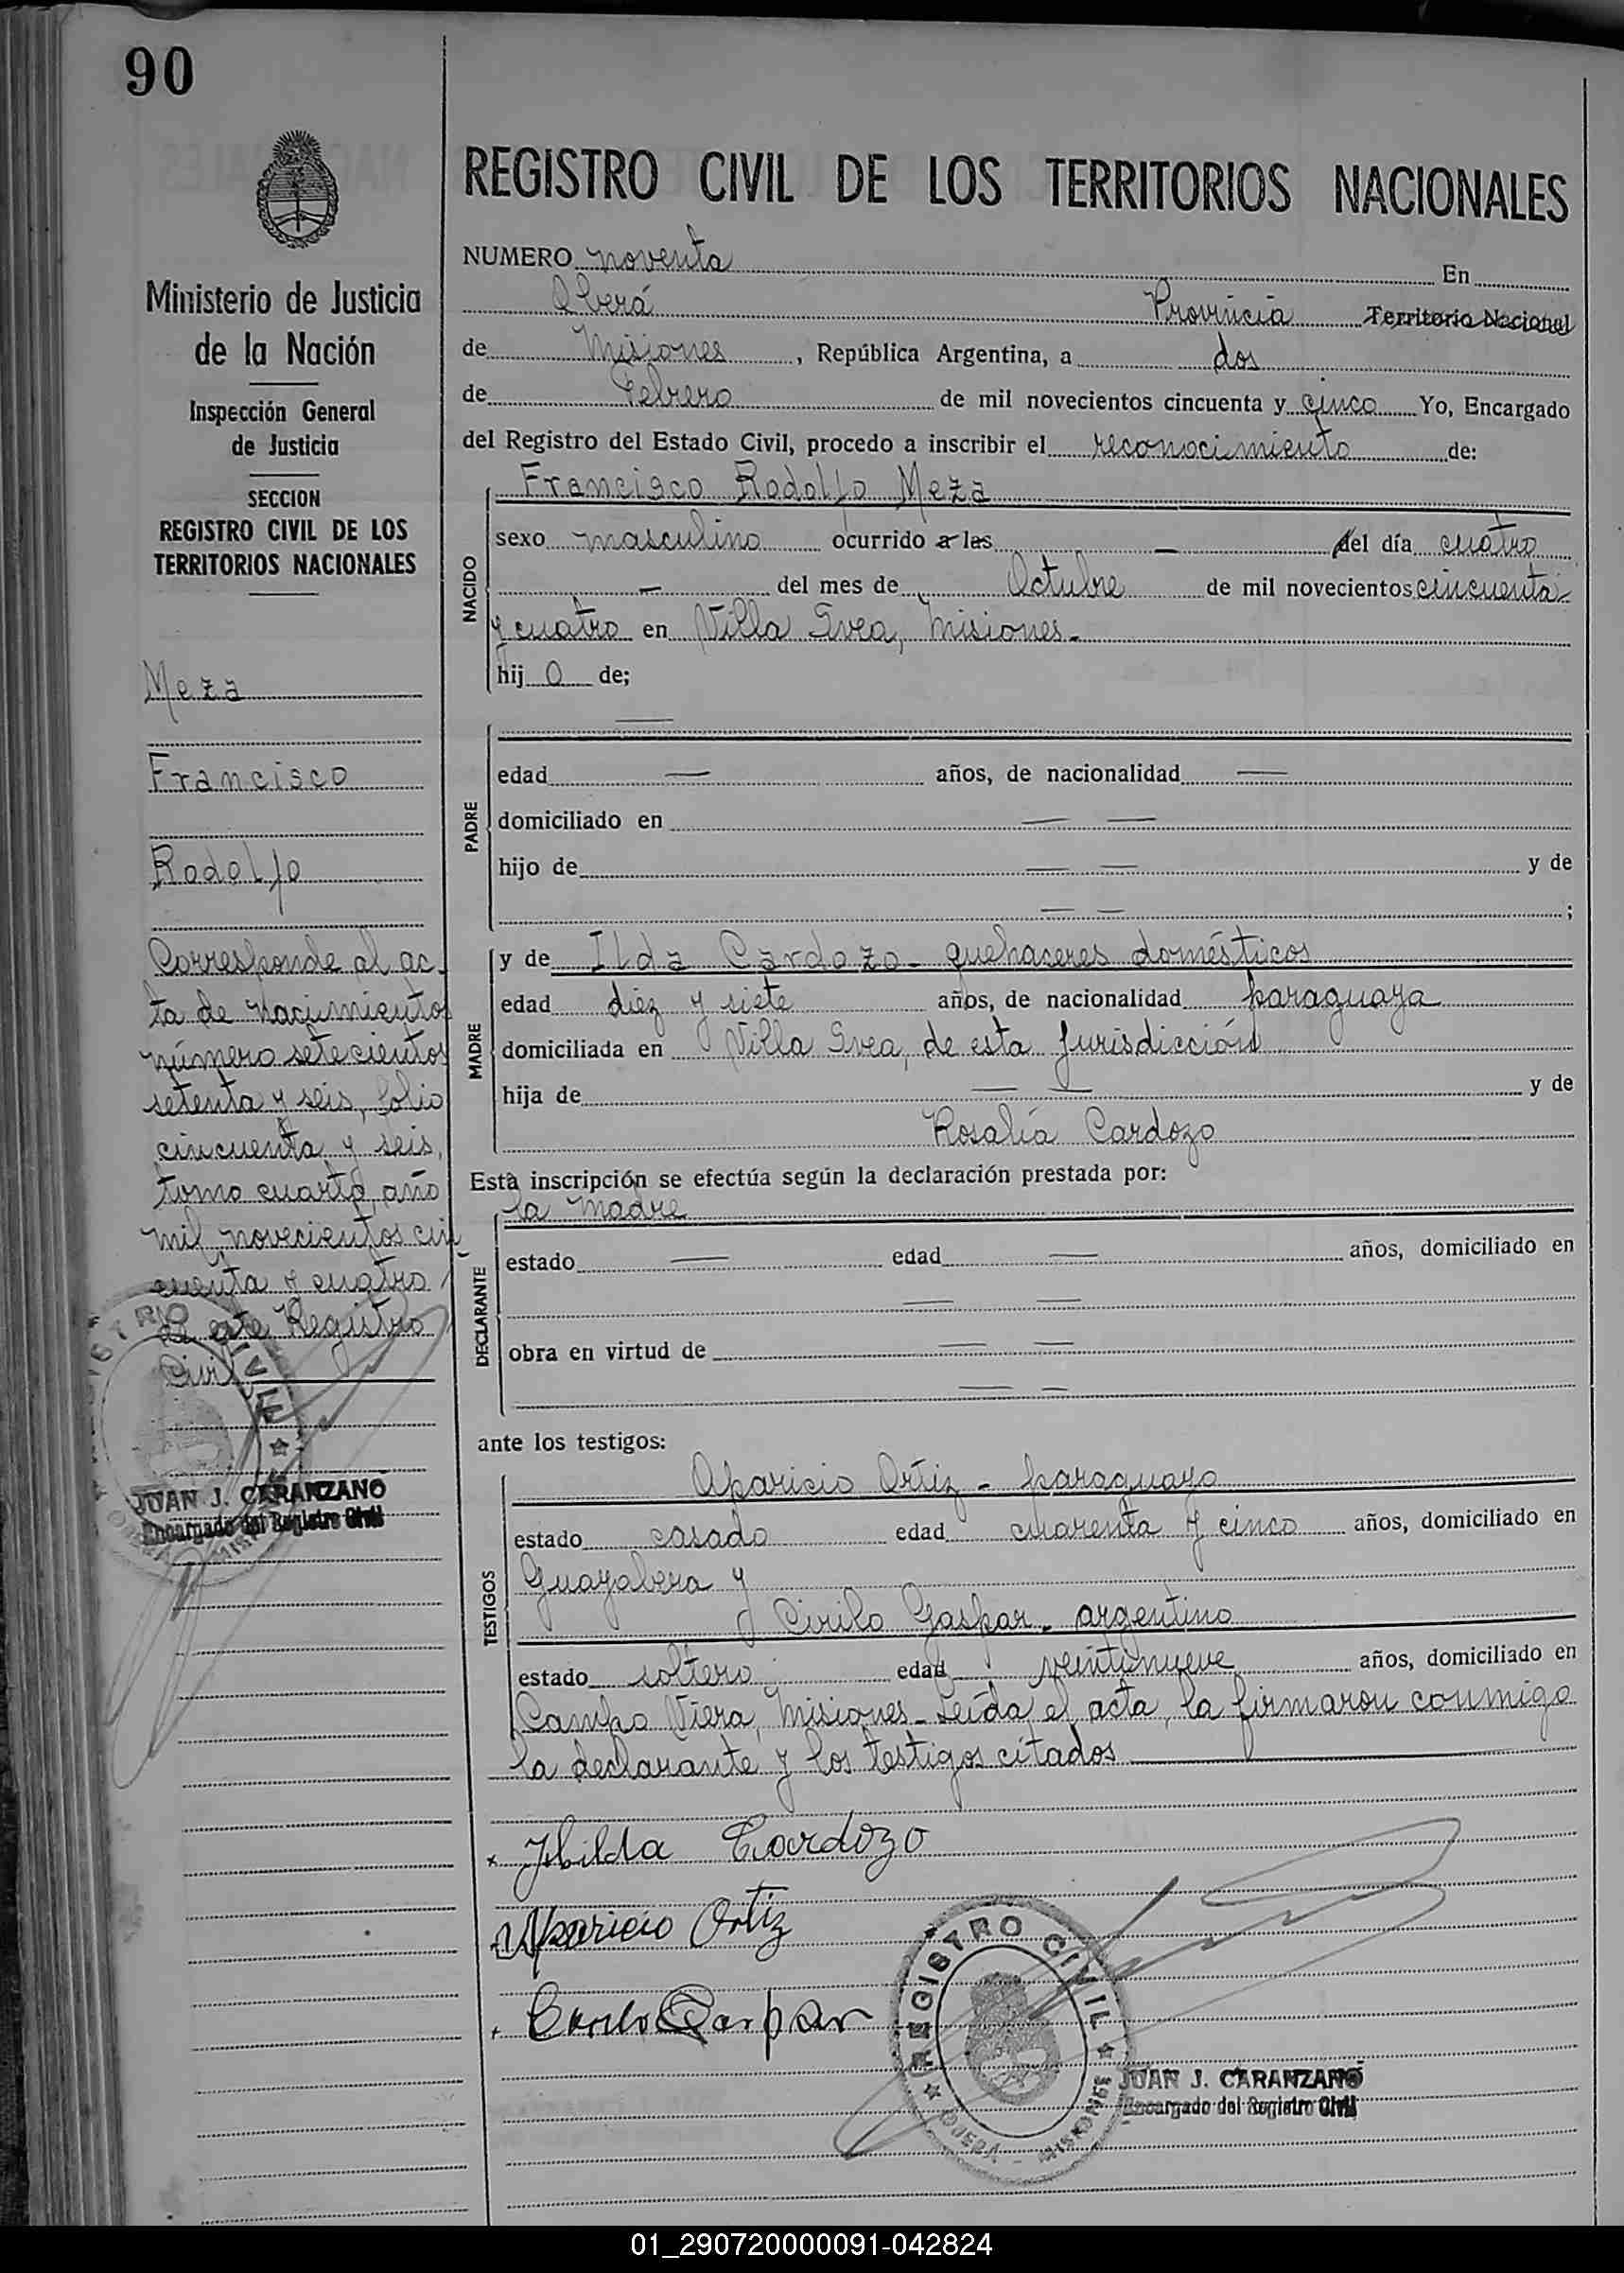 90
Ministerio de Justicia
de la Nación
Inspección General
de Justicia
SECCION
REGISTRO CIVIL DE LOS
TERRITORIOS NACIONALES
Meza
Francisco
Rodolfo
Corresponde al ac-
ta de nacimientos
número setecientos
setenta y seis, folio
cincuenta y seis,
tomo cuarto, año
mil novecientos cin-
cuenta y cuatro
de este Registro
Civil
REGISTRO CIVIL
JUAN J. CARANZANO
Encargado del Registro Civil
REGISTRO CIVIL DE LOS TERRITORIOS NACIONALES
NUMERO noventa En
Oberá Provincia Territorio Nacional
de Misiones, República Argentina, a dos
de Febrero de mil novecientos cincuenta y cinco Yo, Encargado
del Registro del Estado Civil, procedo a inscribir el reconocimiento de:
Francisco Rodolfo Meza
NACIDO
sexo masculino ocurrido a las — del día cuatro
— del mes de Octubre de mil novecientos cincuenta
y cuatro en Villa Svea, Misiones.
hij o de;
PADRE
—
edad — años, de nacionalidad —
domiciliado en — —
hijo de — — y de
— — ;
MADRE
y de Ilda Cardozo - quehaceres domésticos
edad diez y siete años, de nacionalidad paraguaya
domiciliada en Villa Svea, de esta jurisdicción
hija de — — y de
Rosalía Cardozo
Esta inscripción se efectúa según la declaración prestada por:
la madre
DECLARANTE
estado — edad — años, domiciliado en
— —
obra en virtud de — —
— —
ante los testigos:
TESTIGOS
Aparicio Ortiz - paraguayo
estado casado edad cuarenta y cinco años, domiciliado en
Guayabera y
Cirilo Gaspar - argentino
estado soltero edad veintinueve años, domiciliado en
Campo Viera, Misiones - Leída el acta, la firmaron conmigo
la declarante y los testigos citados
x Hilda Cardozo
Aparicio Ortiz
Cirilo Gaspar
REGISTRO CIVIL
OBERA - MISIONES
JUAN J. CARANZANO
Encargado del Registro Civil
01_290720000091-042824